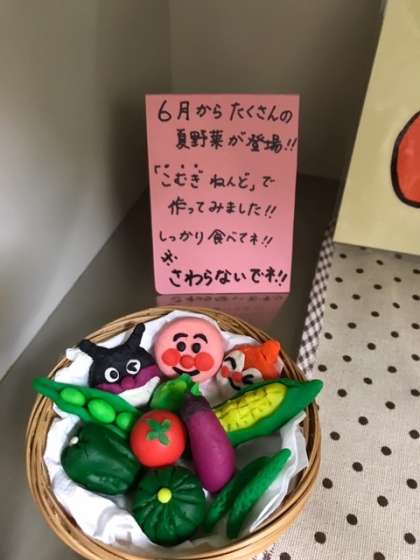 6月から たくさんの
夏野菜が登場!!
「こむぎ ねんど」で
作ってみました!!
しっかり食べてネ!!
※
さわらないでネ!!